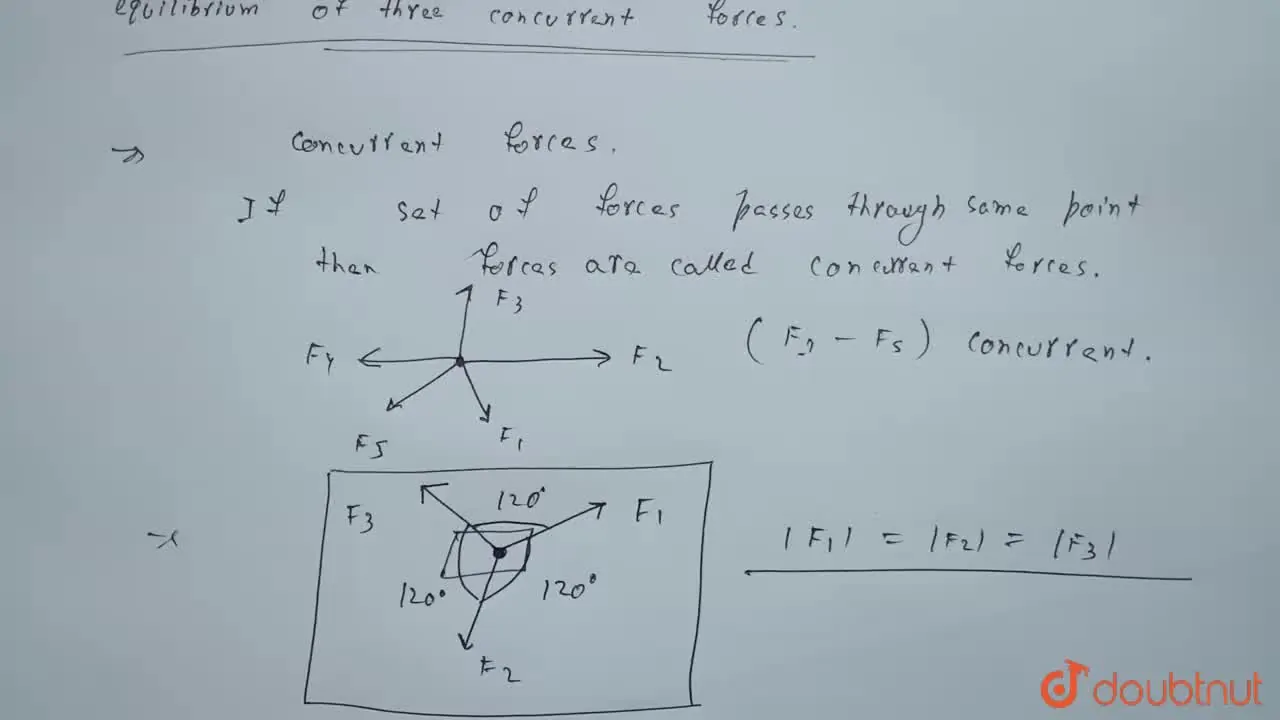 equilibrium of three concurrent forces.
→ Concurrent forces.
If set of forces passes through same point
then forces are called concurrent forces.
F3
F4
F2
(F1 - F5) concurrent.
F5
F1
F3
120°
F1
|F1| = |F2| = |F3|
120°
120°
F2
doubtnut